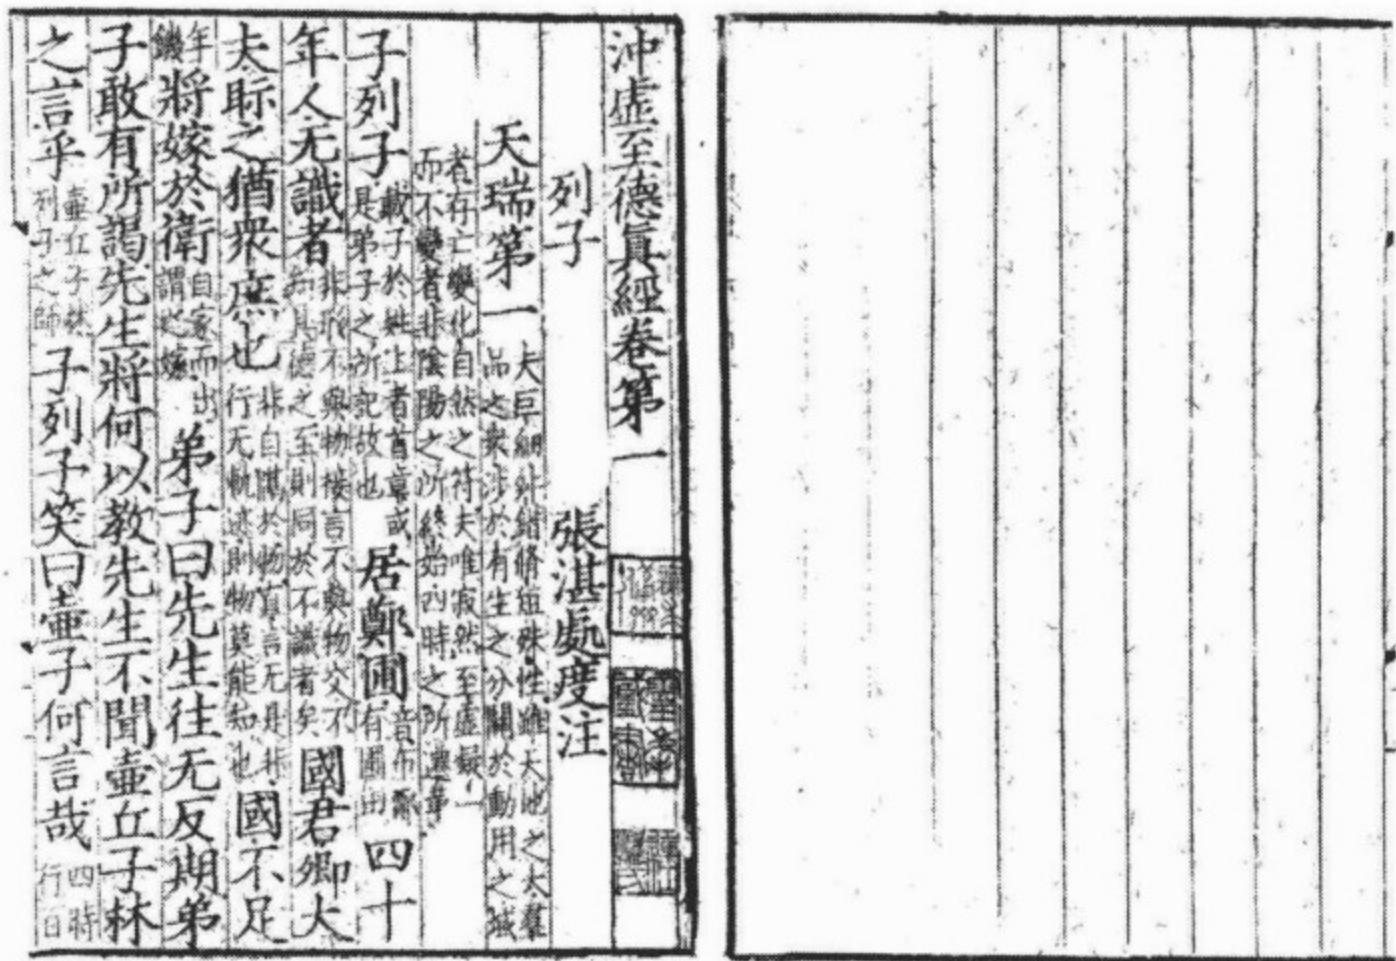 沖虛至德眞經卷第一
列子　張湛處度注
天瑞第一夫巨細舛錯脩短殊性雖天地之大羣品之衆涉於有生之分關於動用之域
者存亡變化自然之符夫唯寂然至虛凝一而不變者非陰陽之所終始四時之所遷革
子列子載子於姓上者首章或是弟子之所記故也居鄭圃音布鄭有圃田四十
年人无識者非形不與物接言不與物交不知其德之至則同於不識者矣國君卿大
夫眎之猶衆庶也非自隔於物直言无是非行无軌迹則物莫能知也國不足
年饑將嫁於衛自家而出謂之嫁弟子曰先生往无反期弟
子敢有所謁先生將何以教先生不聞壷丘子林
之言乎壷丘子林列子之師子列子笑曰壷子何言哉四時行百